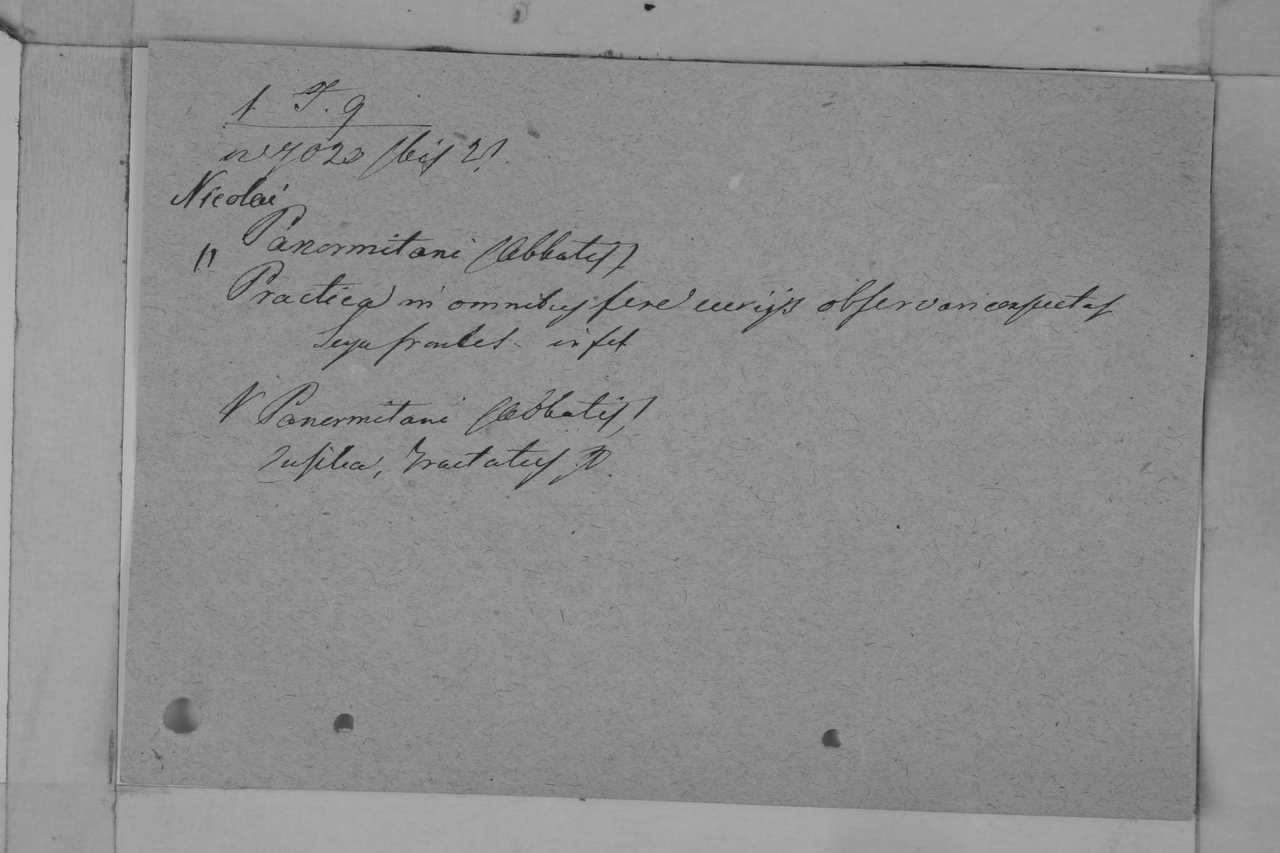 1 F. 9
nº 7023 (bis 2).
Nicolai
" Panormitani (Abbatis)
Practica in omnibus fere curijs observari consuetas
in fol
V Panormitani (Abbatis)
Tractatus